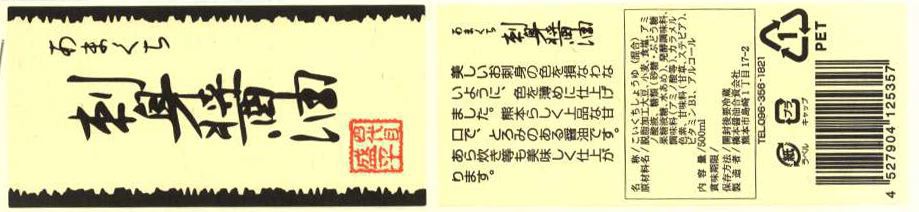 あまくち
刺身醤油
四代目
あまくち
刺身醤油
美しいお刺身の色を損なわな
いように、色を薄めに仕上げ
ました。熊本らしく上品な甘
口で、とろみのある醤油です。
あら炊き等も美味しく仕上が
ります。
名称/こいくちしょうゆ(混合)
原材料名/脱脂加工大豆、小麦、食塩、アミ
ノ酸液、糖類(砂糖・ぶどう糖
果糖液糖、水あめ)、発酵調味料、
調味料(アミノ酸等)、カラメル
色素、甘味料(甘草、ステビア)、
ビタミンB1、アルコール
内容量/500ml
賞味期限/
保存方法/開封後要冷蔵
製造者/橋本醤油合資会社
熊本市島崎1丁目17-2
TEL.096-356-1821
1
PET
プラ
キャップ
紙
ラベル
4 527904 125357